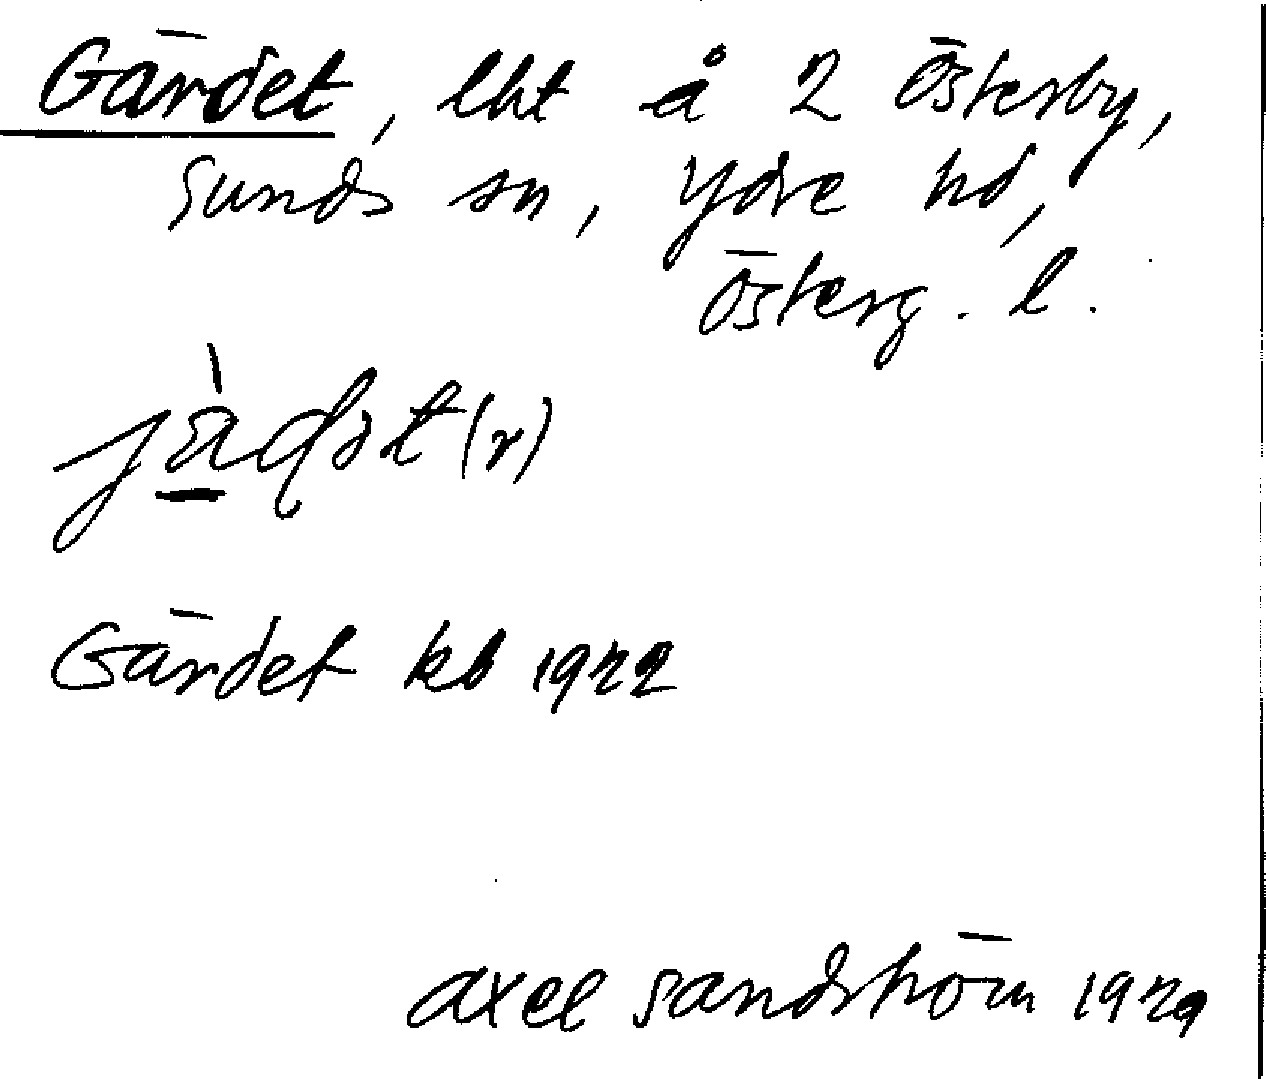 Gärdet, lht å 2 Österby,
Sunds sn, Ydre hd,
Österg. l.
Gärdet kb 1922
Axel Sandström 1929